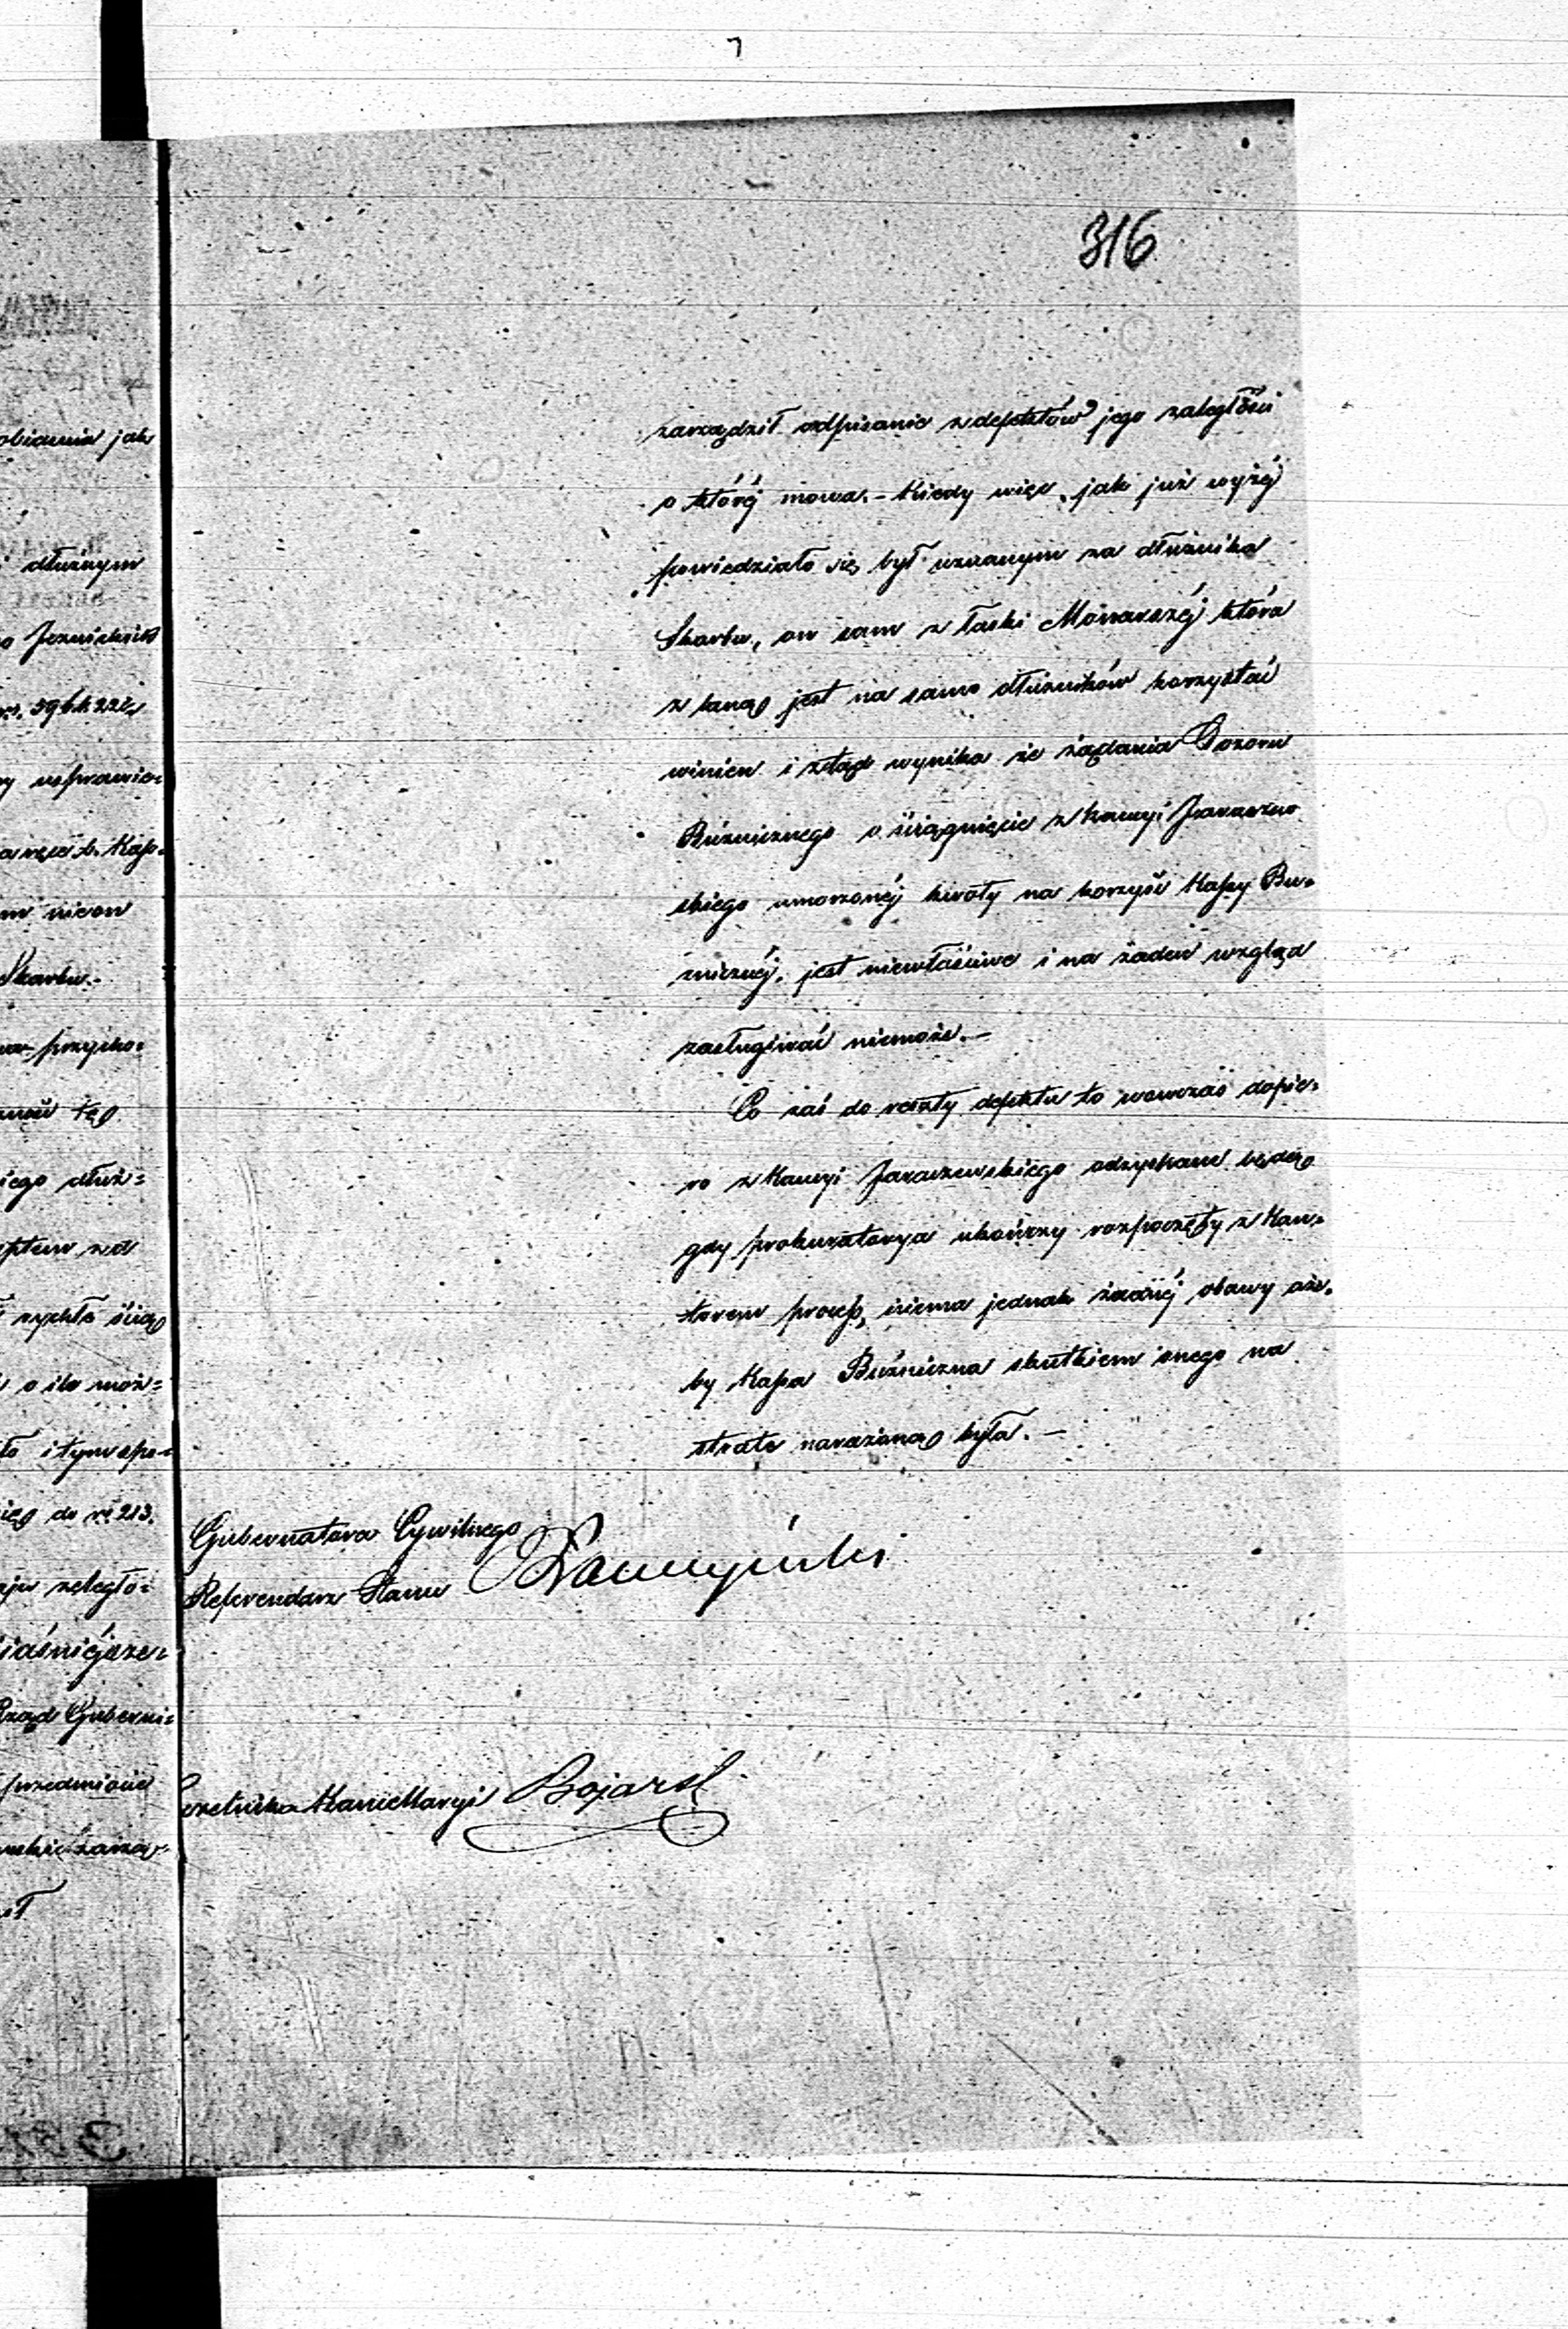 7
316
zarządził odpisanie z defektów jego zaległości
o któréj mowa. – Kiedy więc, jak już wyżéj
powiedziało się, był uznanym za dłużnika
Skarbu, on sam z łaski Monarszéj która
zlaną jest na samo dłużników korzystać
winien i ztąd wynika że żądania Dozoru
Bóżniczego o ściągnięcie z kaucyi Jaraczew
skiego umorzonéj kwoty na korzyść Kassy Bu-
żniczéj, jest niewłaściwe i na żaden wzgląd
zasługiwać niemoże. –
Co zaś do reszty defektu to wowczas dopie-
ro z Kaucyi Jaraczewskiego odzyskane będą
gdy prokuratorya ukończy rozpoczęty z Kan-
torem process, niema jednak żadnéj obawy aże-
by Kassa Bużniczna skutkiem onego na
stratę narażoną była. –
Gubernatora Cywilnego
Referendarz Stanu
Czelnika Kancellaryi
obiawia jak
dłużnym
59 k. 22½
Skarbu. –
tę
iego dłuż-
o ile moż-
i tym spo-
do rs 213.
zaległo-
iaśniéjsze-
Rząd Guberni-
przedmiocie